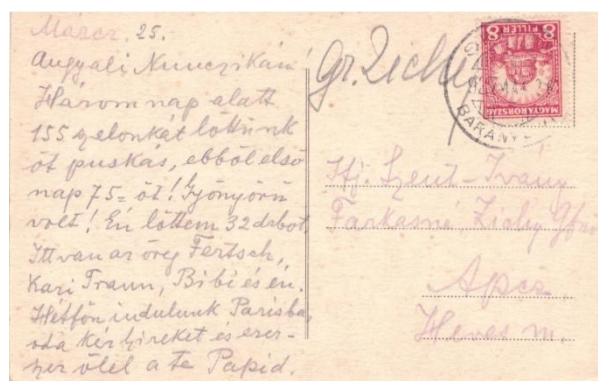 Márcz. 25.
Angyali Nunczikám
Három nap alatt
155 szelonkát lőttünk
öt puskás, ebből első
nap 75= öt! Gyönyörű
volt! Én lőttem 32 drbot.
Itt van az öreg Fertsch,
Kari Traun, Bibi és én.
Hétfőn indulunk Parisba,
oda kér híreket és ezer-
szer ölel a te Papid.
Gr. Zichy
8 FILLÉR 8
MAGYARORSZÁG
BARANY
Ifj. Szent-Ivány
Farkasné Zichy Gfnő
Apcz
Heves m.